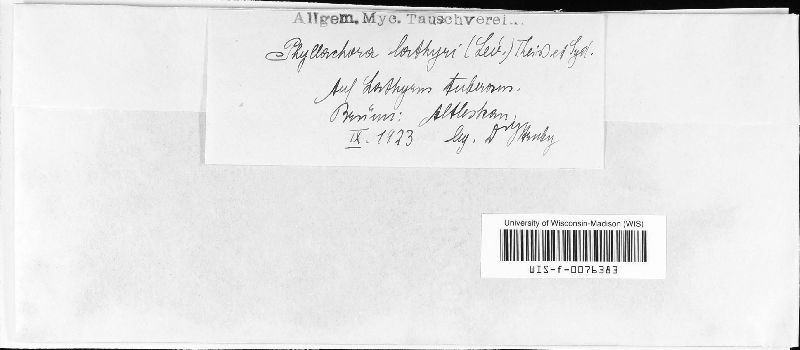 Allgem. Myc. Tauschverei...
Phyllachora lathyri (Lev.) Theiß et Syd.
Auf Lathyrus tuberosus.
IX. 1923 leg. Dr
University of Wisconsin-Madison (WIS)
WIS-f-0076383